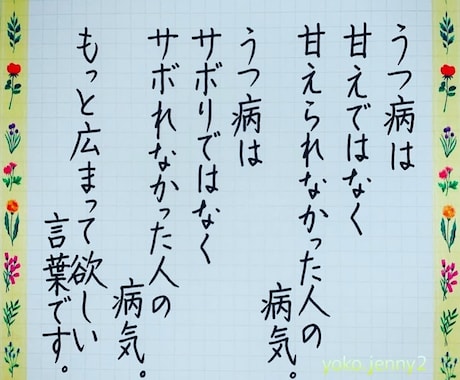 うつ病は
甘えではなく
甘えられなかった人の
病気。
うつ病は
サボりではなく
サボれなかった人の
病気。
もっと広まって欲しい
言葉です。
yoko.jenny2